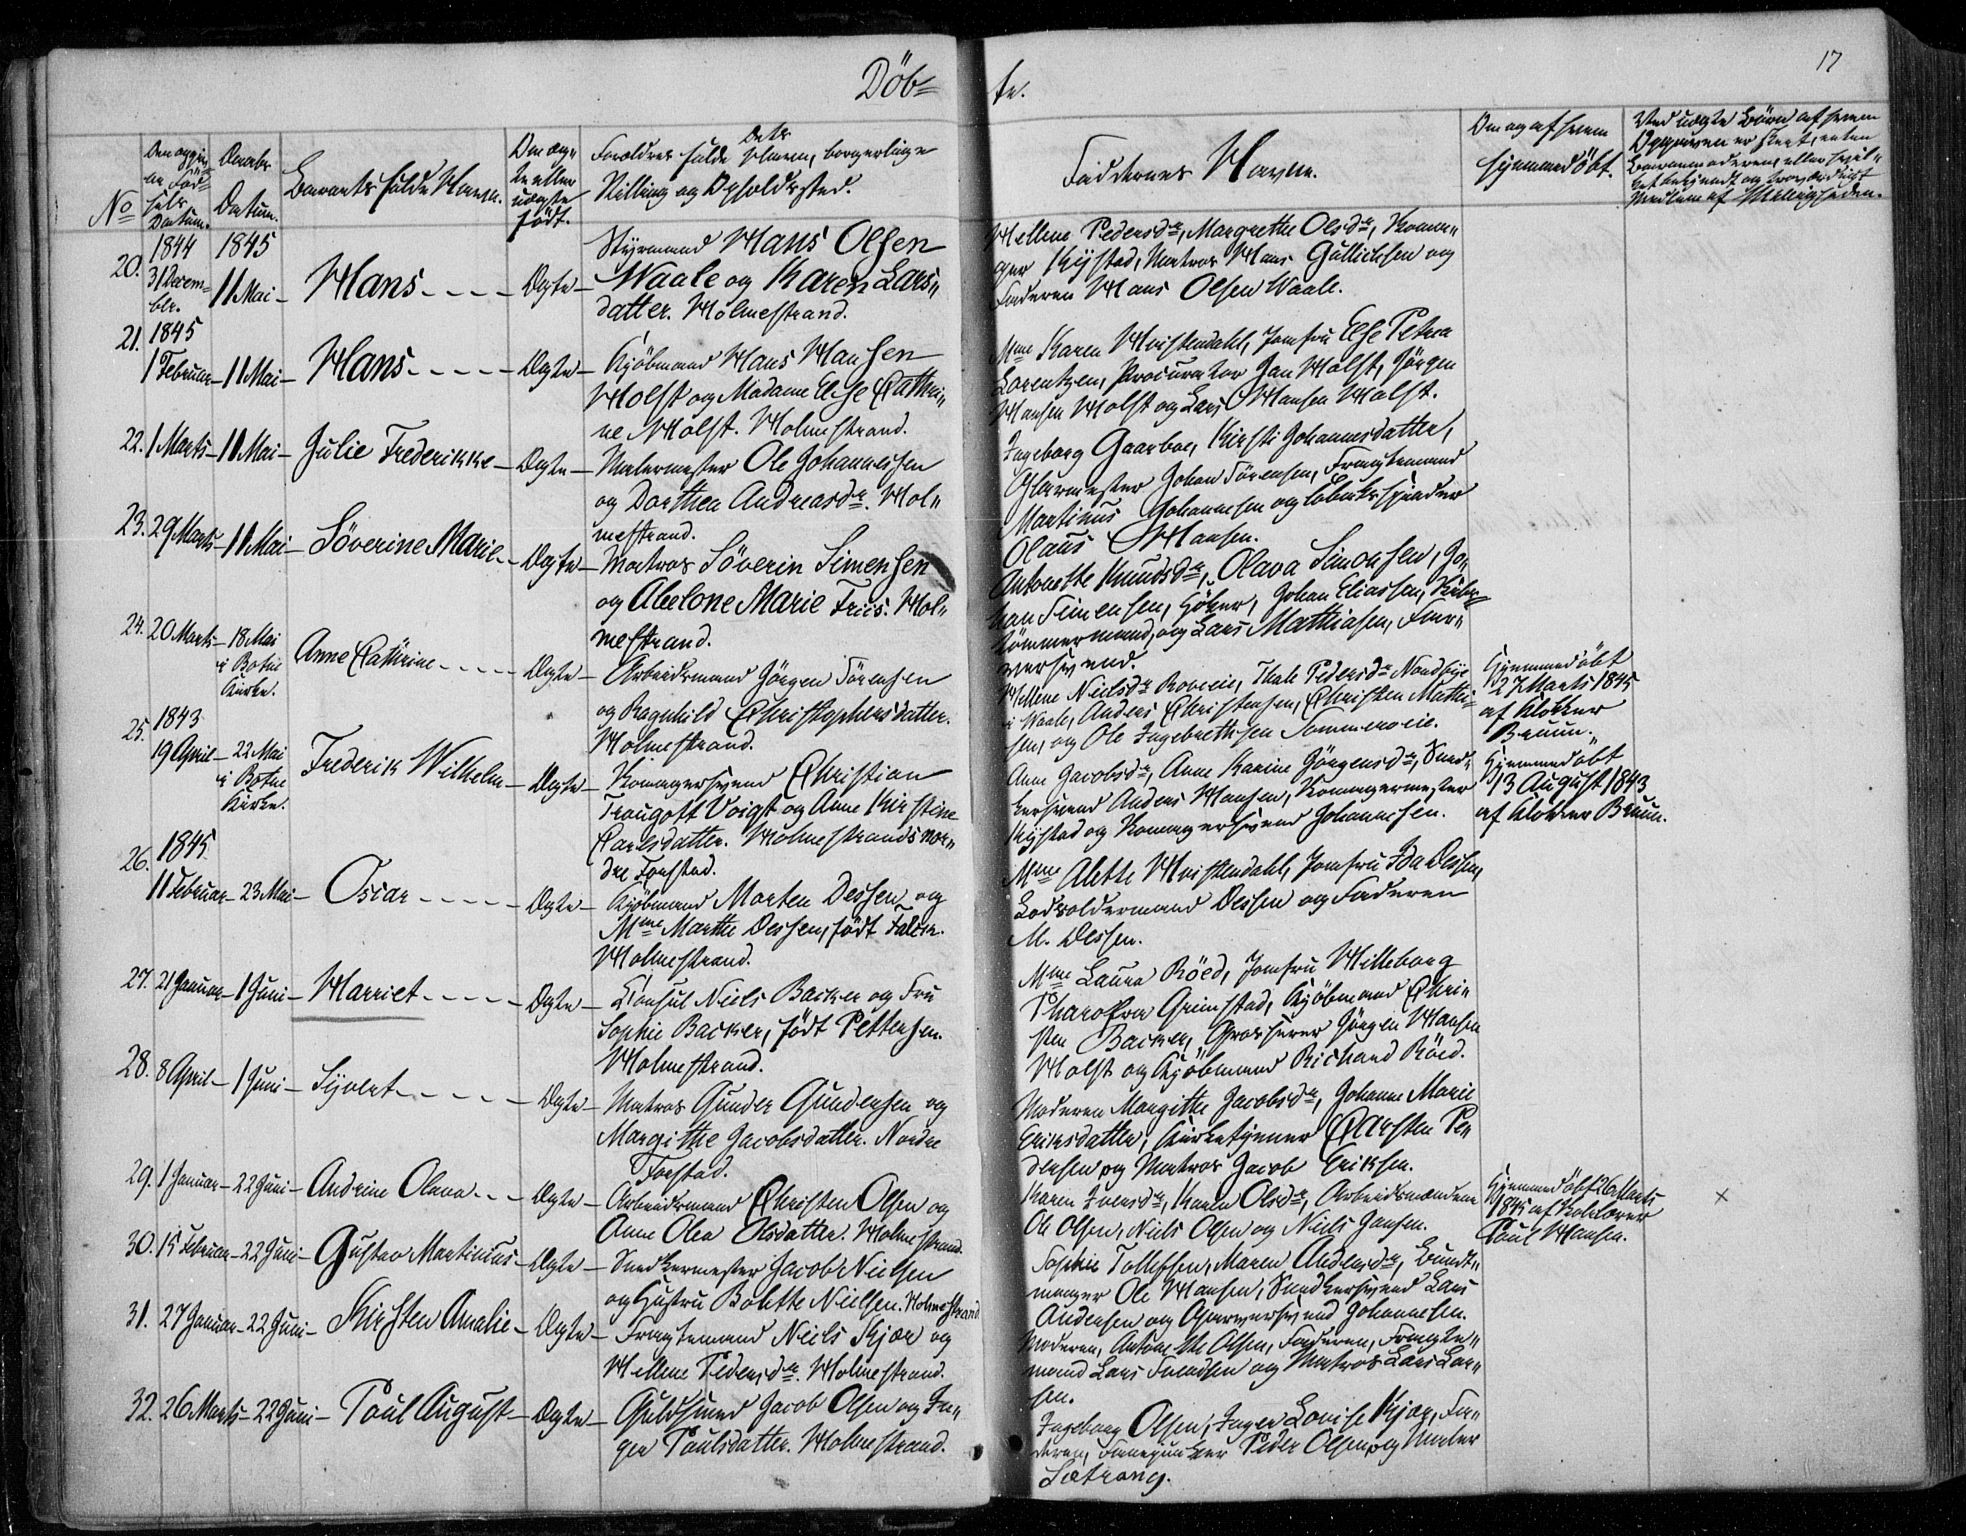 Döb=
te.
17
No
Den opgivne Fødsels Datum.
Daabs Datum.
Barnets fulde Navn.
Om ægte eller uægte født.
Forældres fulde Navn, borgerlige Stilling og Opholdssted.
Faddernes Navne.
Om og af hvem hjemmedöbt.
20. 1844 31 Decem=
ber.
1845 11 Mai – Hans – Ægte –
Styrmand Hans Olsen
Waale og Karen Lars=
datter. Holmestrand.
Hellene Pedersdr, Margrethe Olsdr,
Kystad, Matros Hans Gullichsen og
Faderen Hans Olsen Waale.
21. 1845
1 Februar – 11 Mai – Hans – Ægte –
Kjöbmand Hans Hansen
Holst og Madame Else Cathri=
ne Holst. Holmestrand.
Mme Karen Hvistendahl, Jomfru Else Petra
Lorentzen, Procurator Jan Holst, Jörgen
Hansen Holst og Lars Hansen Holst.
22. 1 Marts – 11 Mai – Julie Frederikke – Ægte –
Malermester Ole Johannesen
og Dorthea Andreasdr. Hol=
mestrand.
Ingeborg Gaarboe, Kirsti Johannesdatter,
Glarmester Johan Sörensen, Fragtemand
Martinus Johannesen og Tobaksspinder
Olaus Hansen.
23. 29 Marts – 11 Mai – Söverine Marie – Ægte –
Matros Söverin Simensen
og Abelone Marie Friis. Hol=
mestrand.
Antonette Knudsdr, Olava Simonsen, Jo=
han Simensen, Johan Eliassen,
Tömmermand, og Lars Mathiasen, Far=
versvend.
24. 20 Marts – 18 Mai
i Botne
Kirke.
Anne Cathrine – Ægte –
Arbeidsmand Jörgen Sörensen
og Ragnhild Christophersdatter.
Holmestrand.
Hellene Nielsdr Roveie, Thale Pedersdr Nordbye
i Waale, Anders Christensen, Christen Mathi=
sen, og Ole Ingebrethsen Sommeroeie.
Hjemmedöbt
27 Marts 1845
af Klokker
Bruun.
25. 1843
19 April – 22 Mai
i Botne
Kirke.
Frederik Wilhelm – Ægte –
Komagersvend Christian
Traugott Voigt og Anne Kirstine
Carlsdatter. Holmestrands nor=
dre Forstad.
Anne Jacobsdr, Anne Karine Jörgensdr, Sned=
kersvend Anders Hansen, Komagermester
Kystad og Komagersvend Johannesen.
Hjemmedöbt
13 August 1843
af Klokker Bruun.
26. 1845
11 Februar – 23 Mai – Oscar – Ægte –
Kjöbmand Morten Dessen og
Mme Marthe Dessen, född Falck.
Holmestrand.
Mme Alette Hvistendahl, Jomfru Ida Dessen,
Lodsoldermand Dessen og Faderen
M. Dessen.
27. 21 Januar – 1 Juni – Harriet – Ægte –
Konsul Niels Backer og Fru
Sophie Backer, födt Pettersen.
Holmestrand.
Mme Laura Röed, Jomfru Hilleborg
Grimstad, Kjöbmand Chri=
sten Backer, Grosserer Jörgen Hansen
Holst og Kjöbmand Richard Röed.
28. 8 April – 1 Juni – Syvert – Ægte –
Matros Gunder Gundersen og
Margithe Jacobsdatter. Nordre
Forstad.
Moderen Margithe Jacobsdr, Johanne Marie
Eriksdatter, Kirketjener Carsten Pe=
dersen og Matros Jacob Eriksen.
29. 1 Januar – 22 Juni – Andrine Olava – Ægte –
Arbeidsmand Christen Olsen og
Anne Olea Olsdatter. Holmestrand.
Karen Iversdr, Karen Olsdr, Arbeidsmændene
Ole Olsen, Niels Olsen og Niels Jansen.
Hjemmedöbt 26 Marts
1845 af
Poul Hansen.
×
30. 15 Februar – 22 Juni – Gustav Martinius – Ægte –
Snedkermester Jacob Nielsen
og Hustru Bolette Nielsen. Holmestrand
Sophie Tollefsen, Maren Andersdr, Bundt=
mager Ole Hansen, Snedkersvend Lars
Andersen og Garversvend Johannesen.
31. 27 Januar – 22 Juni – Kirsten Amalie – Ægte –
Fragtemand Niels Kjær og
Hellene Pedersdr. Holmestrand.
Moderen, Antonette Olsen, Faderen, Fragte=
mand Lars Svendsen og Matros Lars Lar=
sen.
32. 26 Marts – 22 Juni – Poul August – Ægte –
Guldsmed Jacob Olsen og In=
ger Poulsdatter. Holmestrand.
Ingeborg Olsen, Inger Lovise Kjær, Fa=
deren, Peder Olsen og Maler
Sætrang.